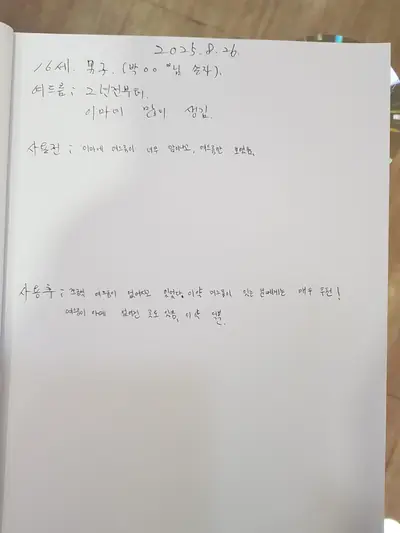 2025.8.26.
16세. 男子. (박００*님 손자).
여드름; 2년전부터.
이마에 많이 생김.
사용전; 이마에 여드름이 너무 많았고, 여드름만 보였음.
사용후; 여드름이 없어지고 있었다. 이약 여드름이 있는 분에게는 매우 추천!
여드름이 아예 없어진 곳도 있음.